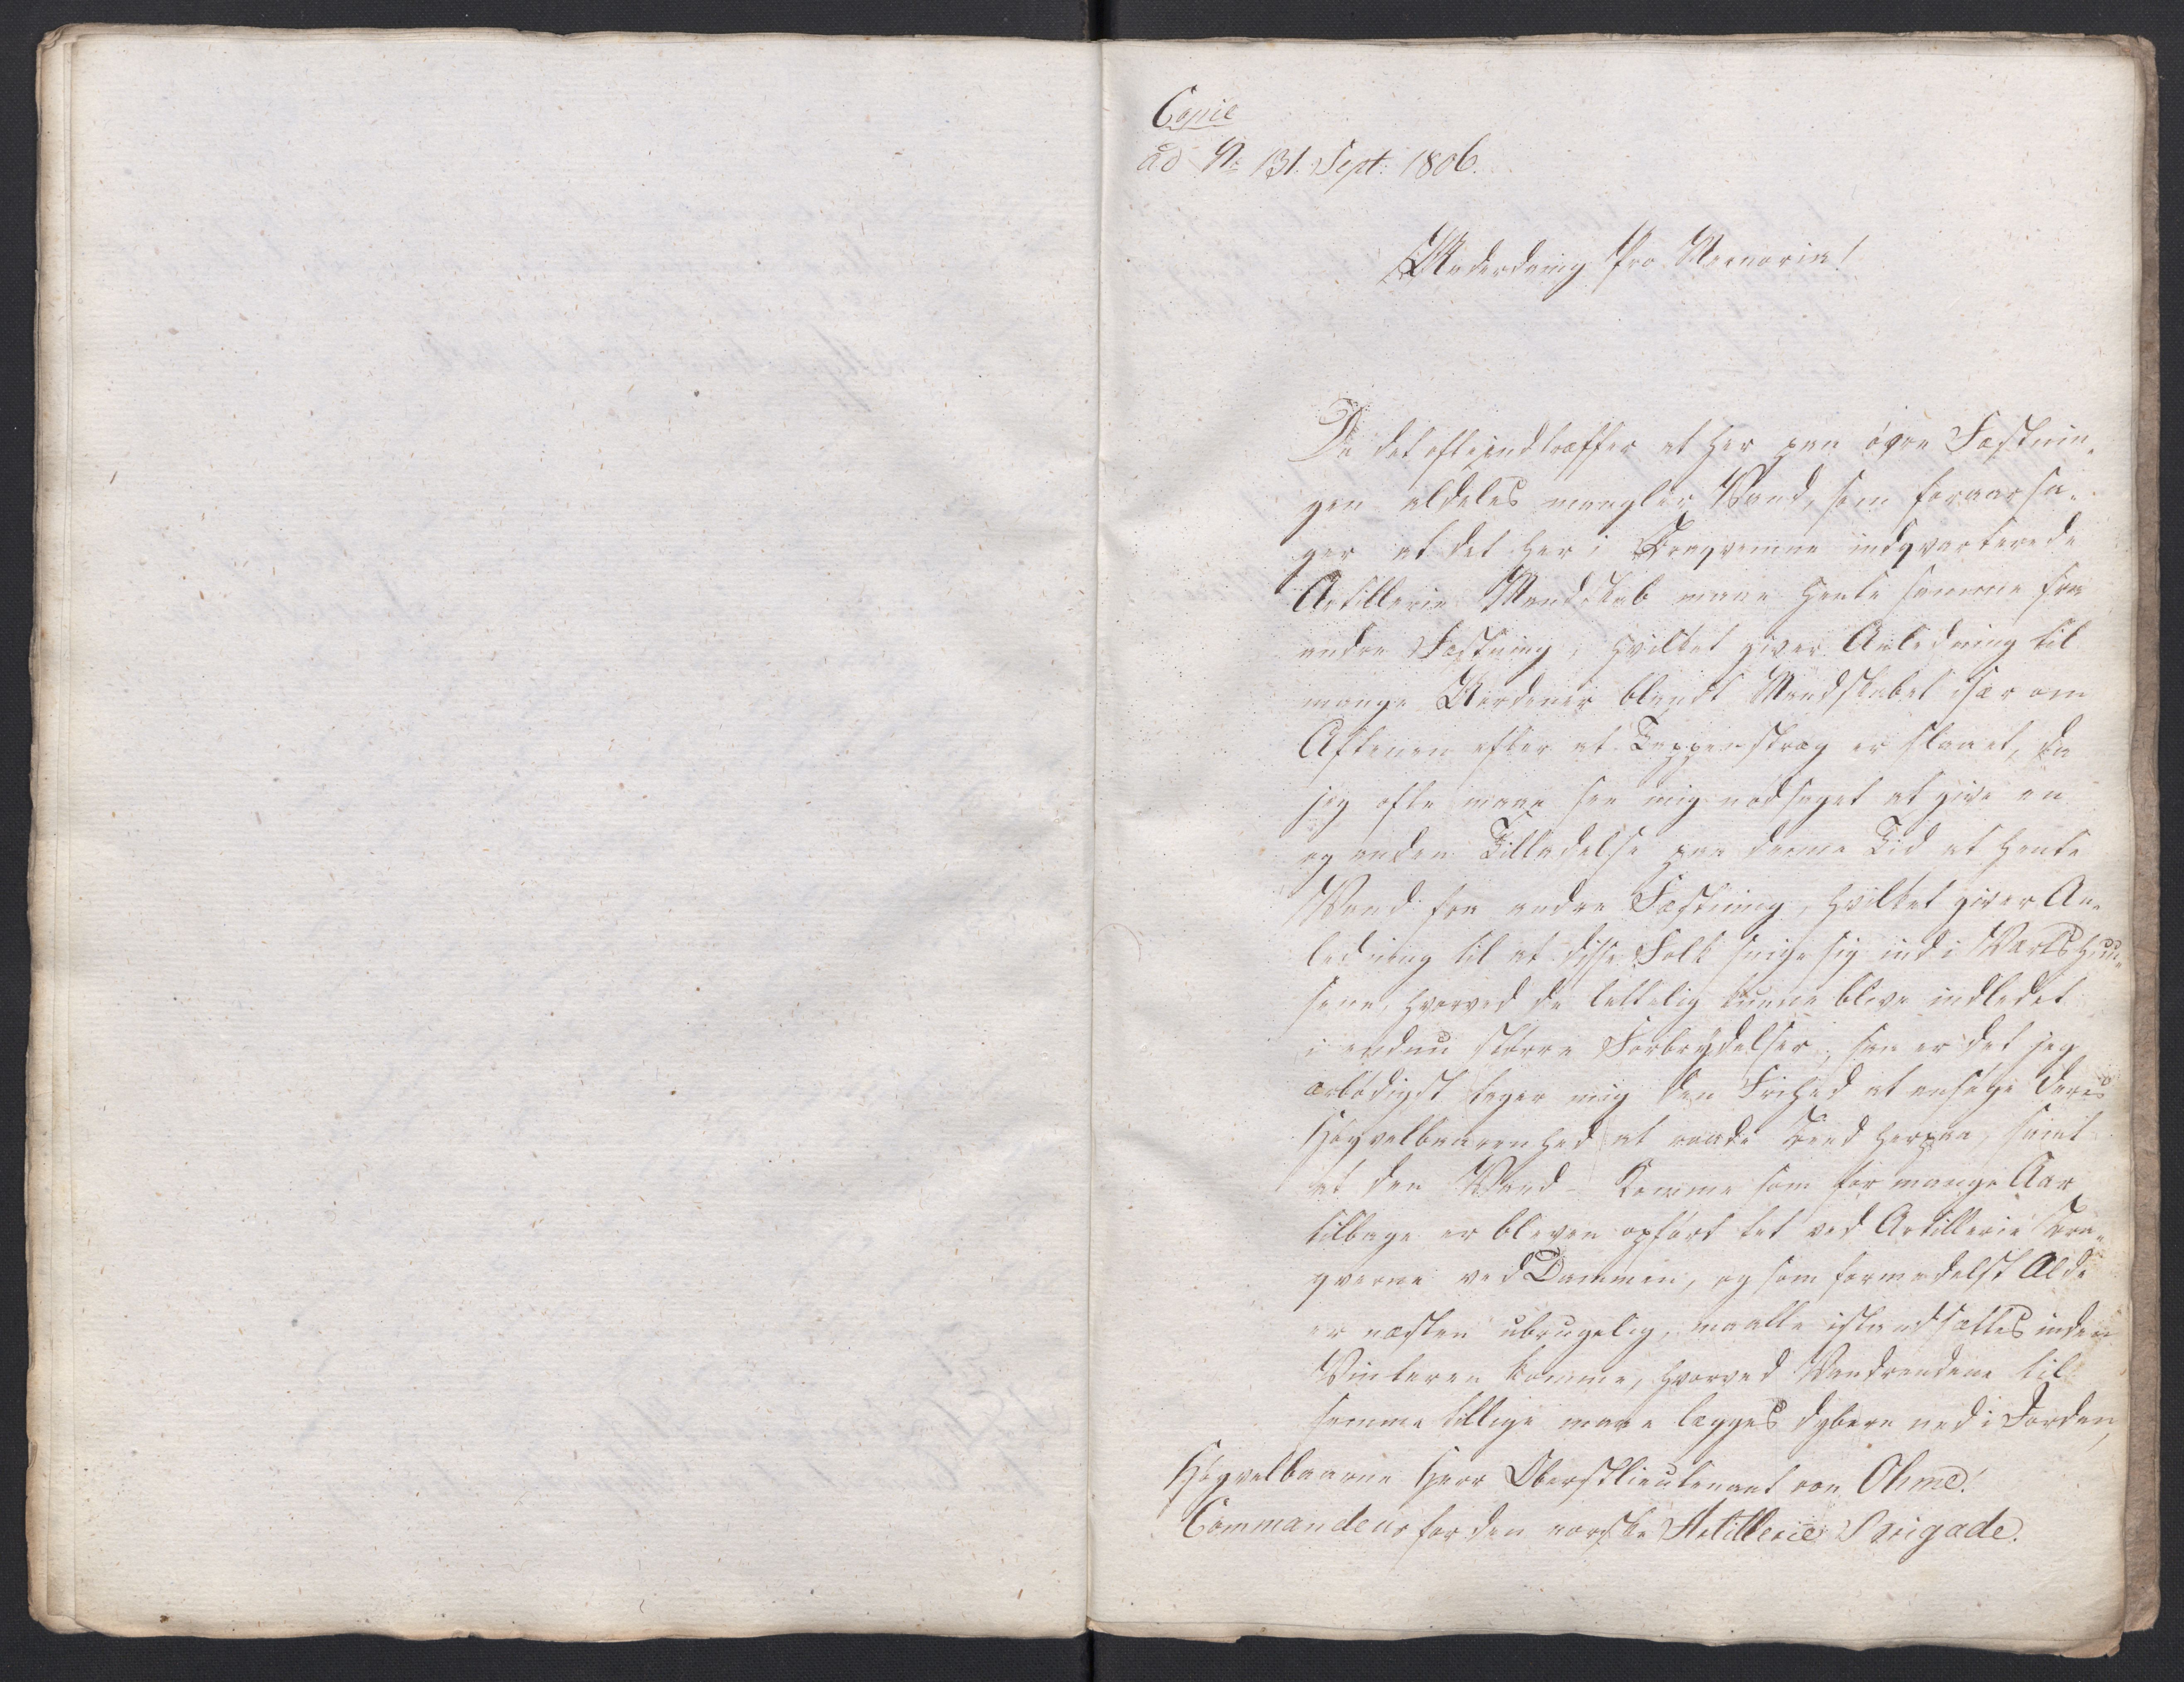 Copie
ad No 131. Sept: 1806.
Underdanig Pro Memoria!
Da det ofte indtræffer at her paa øvre Fæstnin-
gen aldeles mangler Vand, som foraarsa-
ger at det her i Broqvernne indqvarterede
Artillerie Mandskab maae hente samme fra
andre Fæstning, hvilket giver Anledning til
mange Uordener blandt Mandskabet især om
Aftenen efter at Tappenstræg er slaaet, da
jeg ofte maae see mig nødsaget at give en
og anden Tilladelse paa denne Tid at hente
Vand fra andre Fæstning, hvilket giver An-
ledning til at disse Folk snige sig ind i Værtshuu-
sene, hvorved de lettelig kunne blive indledet
i endnu større Forbrydelser, saa er det jeg
ærbødigst tager mig den Frihed at ansøge Deres
Høyvelbaarenhed at raade Bood herpaa, samt
at den Vand-Komme som for mange Aar
tilbage er bleven opført tet ved Artillerie
ved Dammen, og som formedelst Ælde
er næsten ubrugelig, maatte istandsættes inden
Vinteren komme, hvorved Vandrendene til
samme tillige maae lægges dybere ned i Jorden,
Høyvelbaarne Herr Oberstlieutenant von Ohme!
Commandeur for den norske Artillerie Brigade.